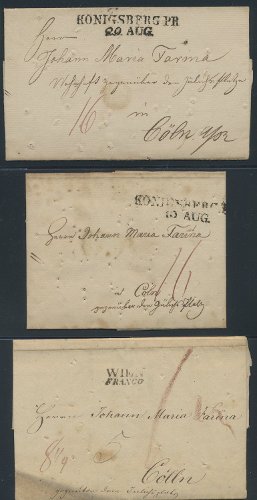 KONIGSBERG PR
20 AUG.
Herrn
Johann Maria Farina
gegenüber dem Jülichsplatze
in
16
Cöln
KONIGSBERG
AUG.
Herrn Johann Maria Farina
16
in Cöln
gegenüber dem Jülichs Platz
WIEN
FRANCO
Herrn Johann Maria Farina
Cölln
gegenüber dem Jülichsplatz